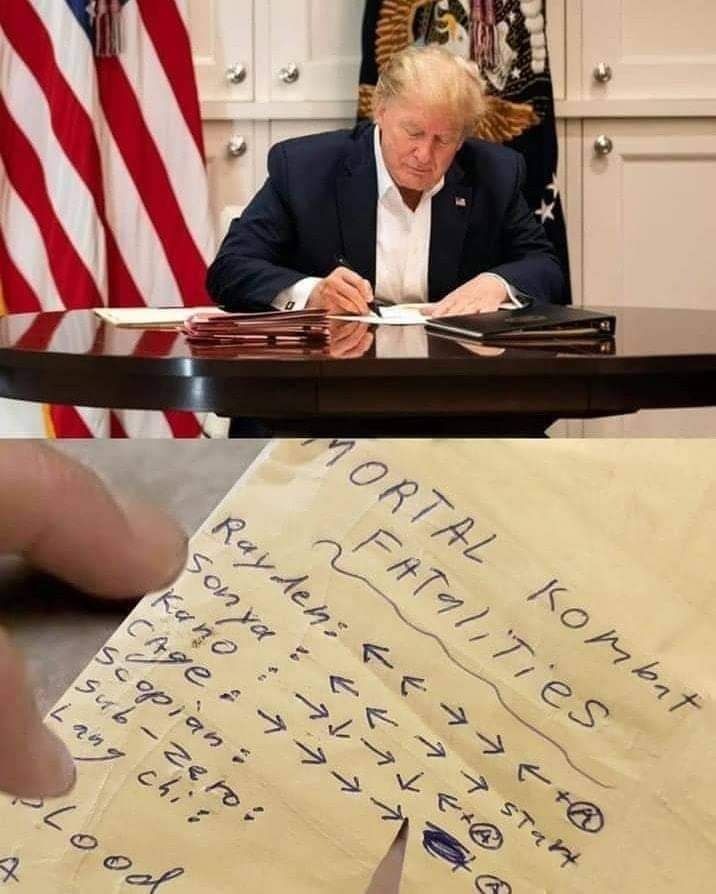 MORTAL KOMbAT
FATALiTieS
Rayden: ← ← → → ← + Ⓐ
Sonya: ← ← → → START
Kano: → ↓ → ↓ ← + Ⓐ
CAge: → → → → → + Ⓐ
Scopian:
Sub-Zero:
Lang Chi:
BLOOD
A